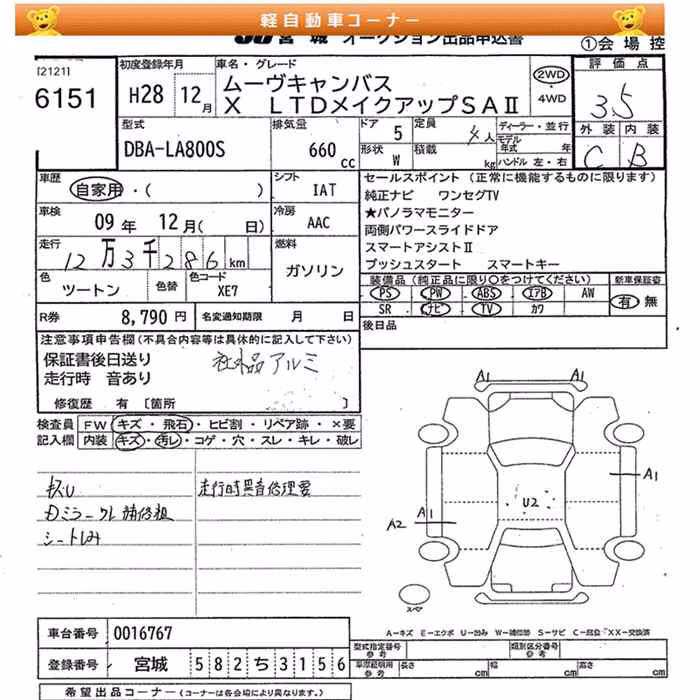 軽自動車コーナー
JU 宮城 オークション出品申込書
①会 場 控
[2121]
6151
初度登録年月
H28 12月
車名・グレード
ムーヴキャンバス
X LTDメイクアップSAⅡ
2WD・4WD
評価点
3.5
外装 内装
C B
型式
DBA-LA800S
排気量
660 cc
ドア 5
定員 4人
ディーラー・並行
モデル年式 年
形状 W
積載 kg
ハンドル 左・右
車歴
自家用・( )
シフト
IAT
セールスポイント (正常に機能するものに限ります)
純正ナビ ワンセグTV
★パノラマモニター
両側パワースライドドア
スマートアシストⅡ
プッシュスタート スマートキー
車検
09年 12月( 日)
冷房
AAC
走行
12万3千286km
燃料
ガソリン
色
ツートン
色替
色コード
XE7
装備品 (純正品に限り○をつけてください)
PS PW ABS エアB AW
SR ナビ TV カワ
新車保証書
有 無
R券 8,790円
名変通知期限 月 日
後日品
注意事項申告欄(不具合内容等は具体的に記入して下さい)
保証書後日送り 社外品アルミ
走行時 音あり
修復歴 有 〔箇所 〕
検査員記入欄
FW キズ・飛石・ヒビ割・リペア跡・×要
内装 キズ・汚レ・コゲ・穴・スレ・キレ・破レ
走行時異音修理要
シートしみ
A1 A1
A1
A1
A2
U2
スペア
A―キズ E―エクボ U―凹み W―補修跡 S―サビ C―腐食 XX―交換済
車台番号 0016767
登録番号 宮城 582ち3156
型式指定番号 参考
類別区分番号 参考
車庫証明用 参考
長さ cm
幅 cm
高さ cm
希望出品コーナー(コーナーは各会場により異なります。)